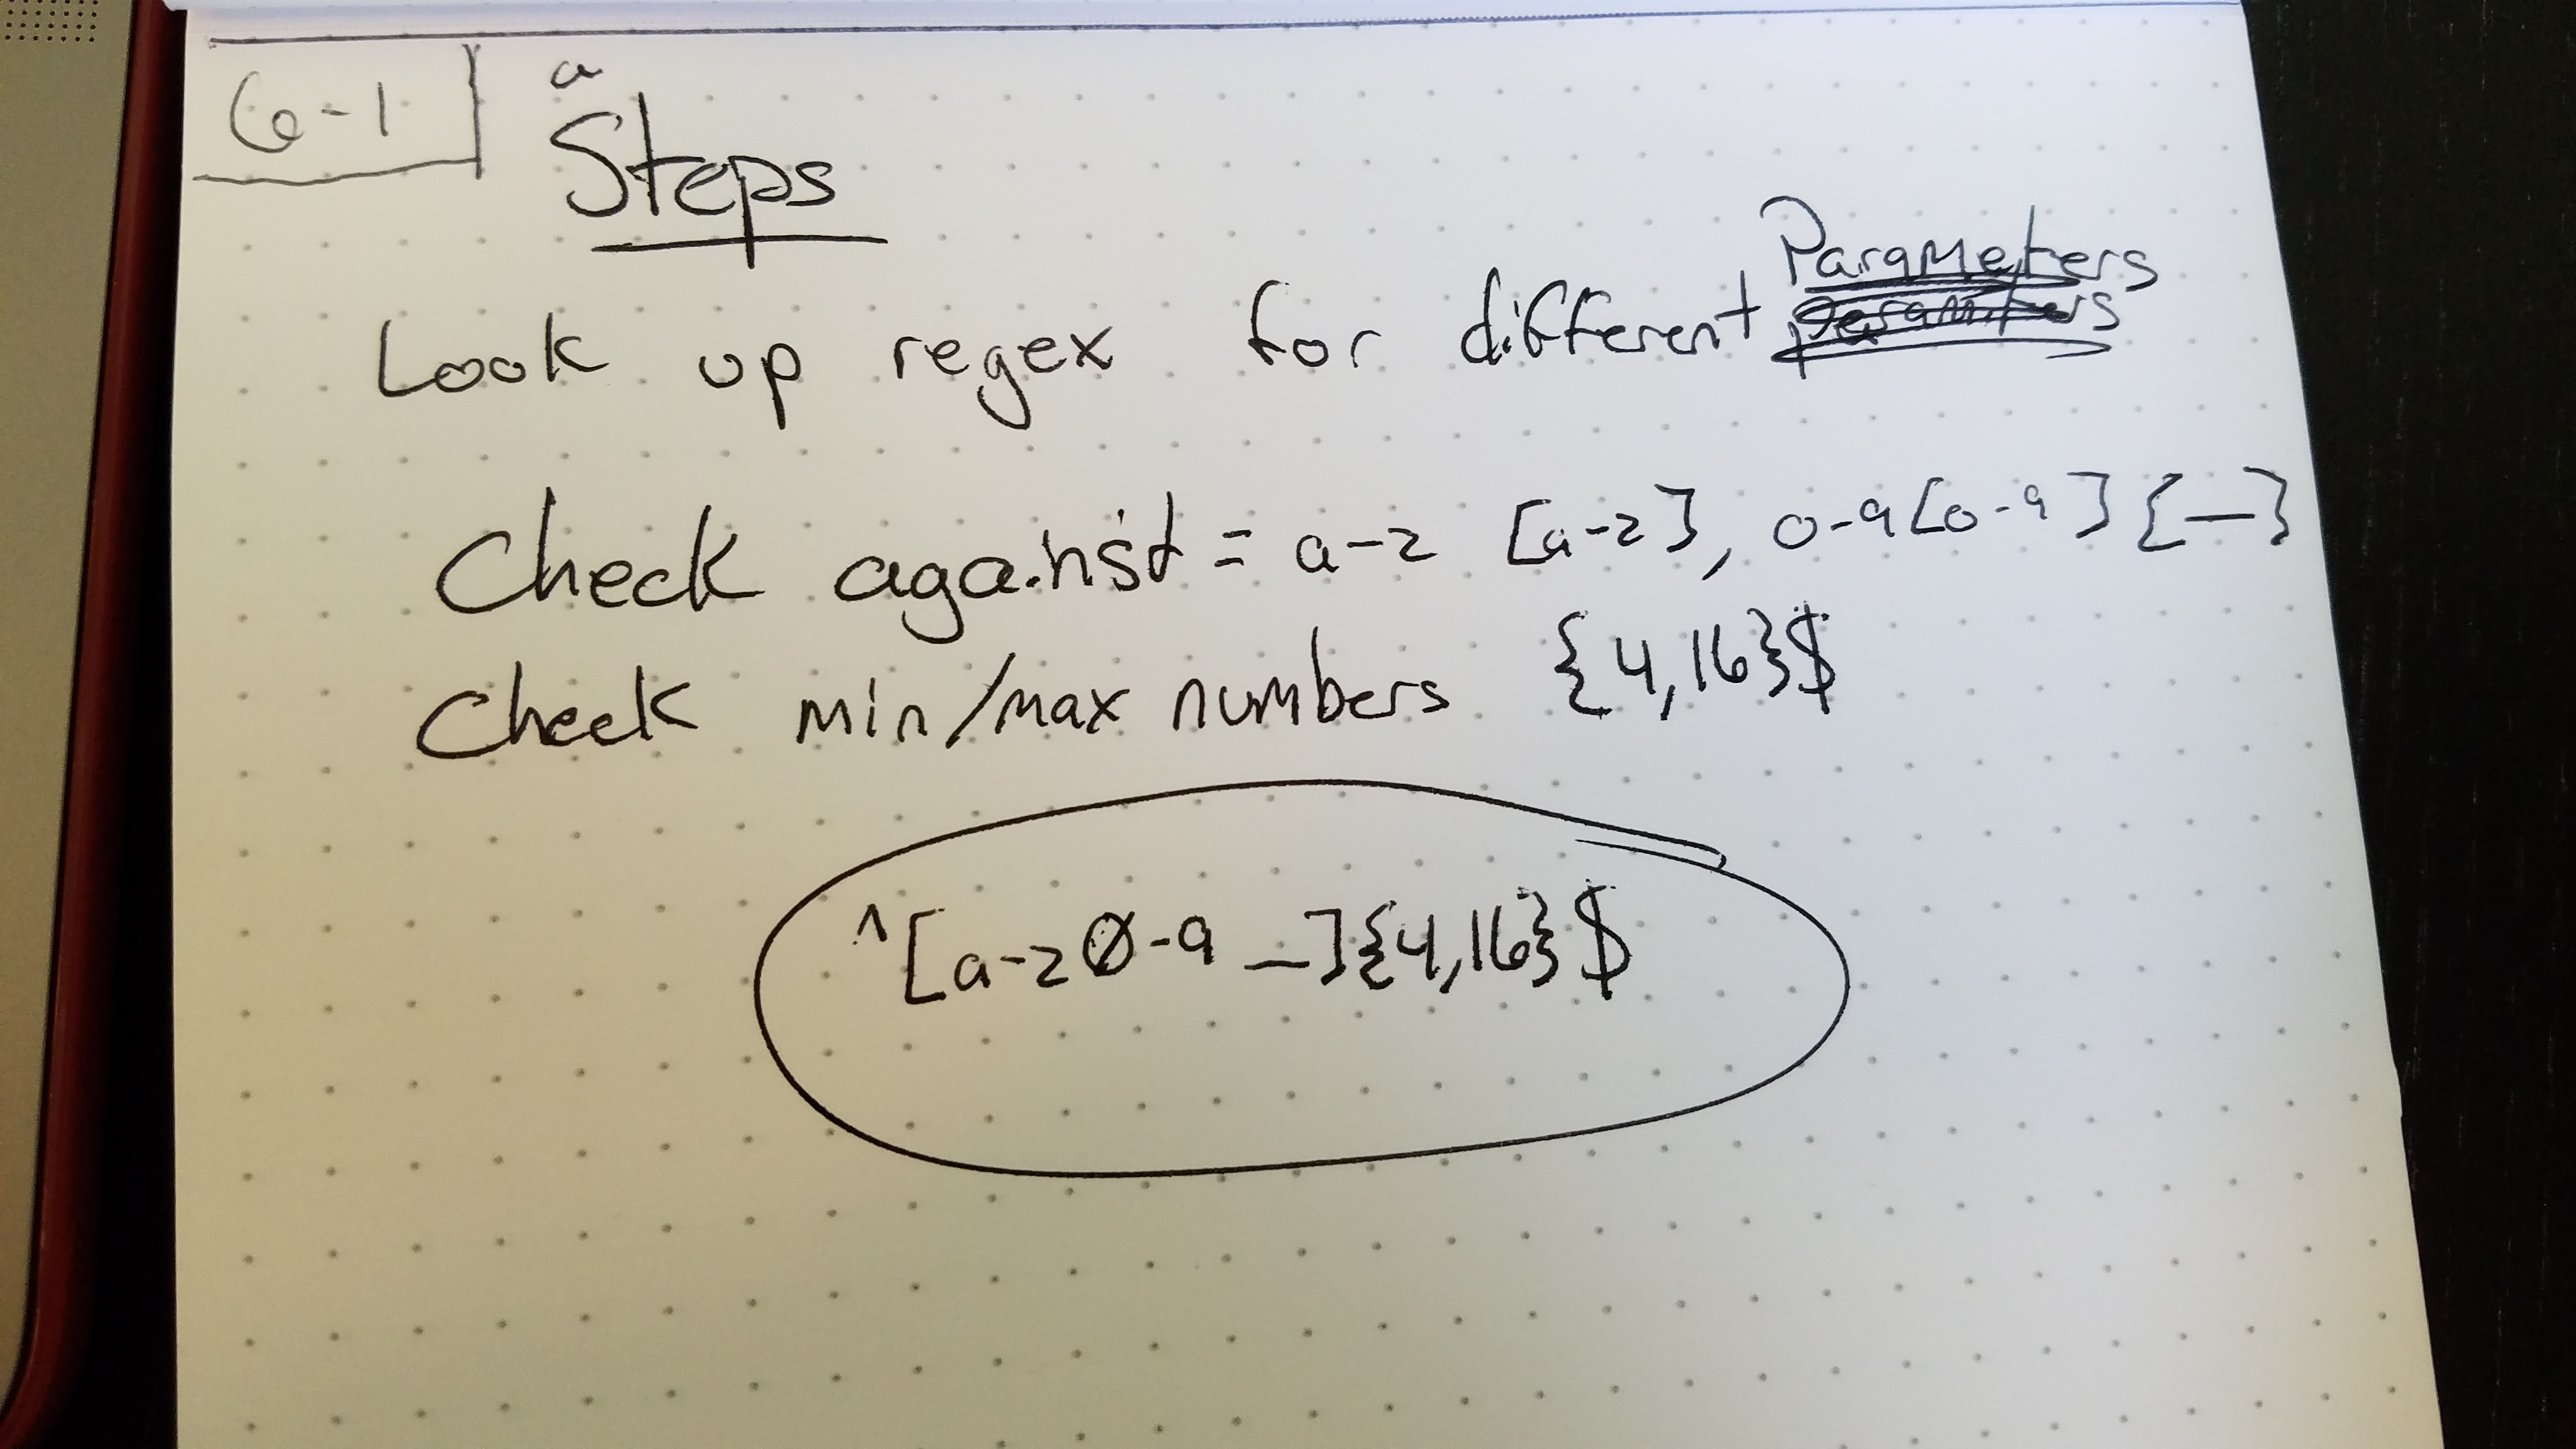 6-1
a
Steps
Look up regex for different Parameters
Check against = a-z [a-z], 0-9[0-9] {_}
Check min/max numbers {4,16}$
^[a-z0-9_]{4,16}$